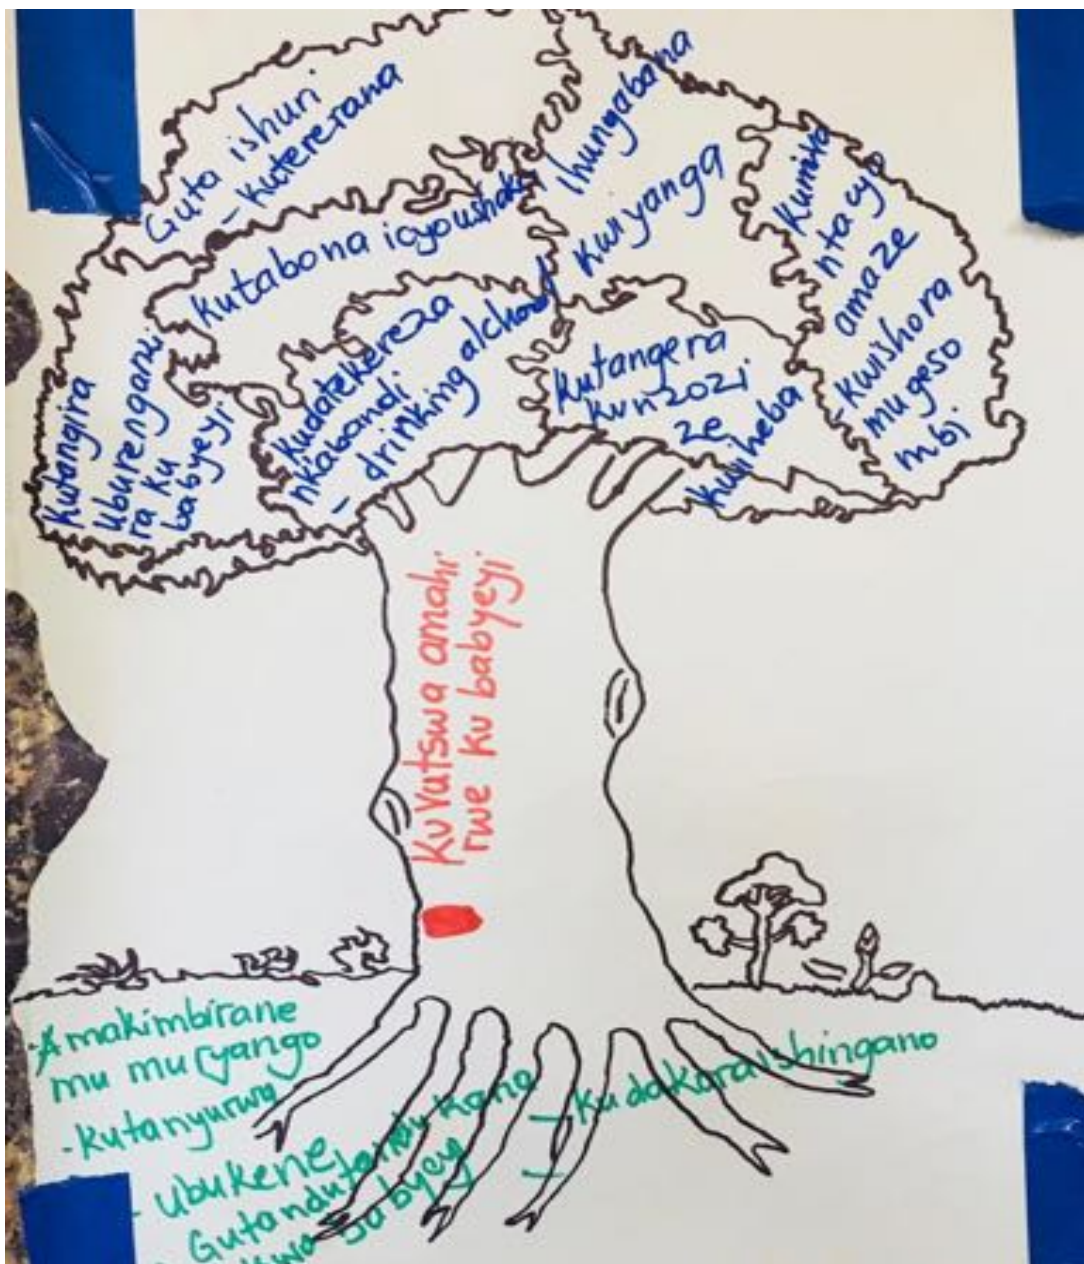 Guta ishuri
- kutererana
Ihungabana
kwiyanga
kutabona icyo ushaka
kumva
ntacyo
amaze
- kwishora
mugeso
mbi
kutangira
uburenganzi
ra ku
babyeyi
kudatekereza
nkabandi
- drinking alchool
kutangera
kunzozi
ze
kwiheba
kuvutswa amahi
rwe ku babyeyi
- Amakimbirane
mu muryango
- kutanyurwa
- ubukene
- kudakora ishingano